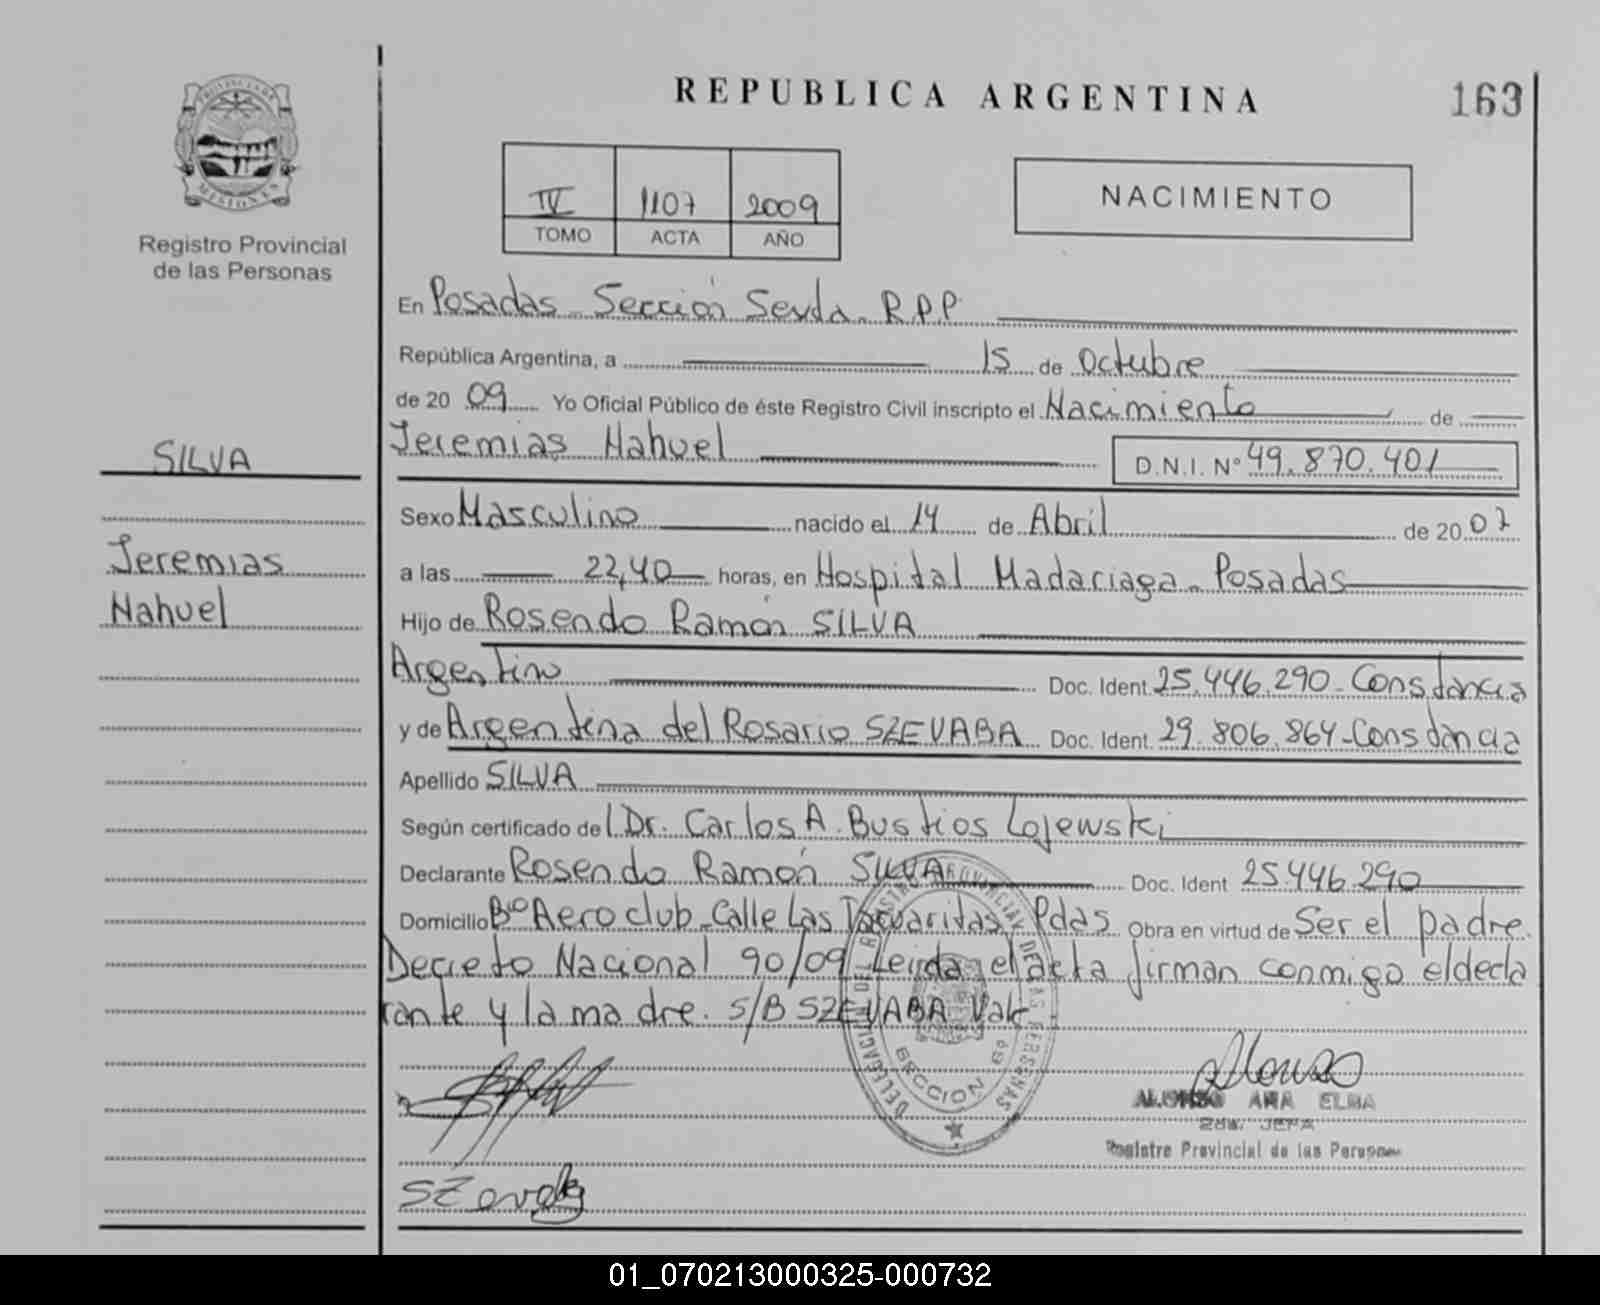 REPUBLICA ARGENTINA
163
PROVINCIA DE
MISIONES
Registro Provincial
de las Personas
IV 1107 2009
TOMO ACTA AÑO
NACIMIENTO
En Posadas - Sección Sexta - R.P.P.
República Argentina, a 15 de Octubre
de 20 09 Yo Oficial Público de éste Registro Civil inscripto el Nacimiento de
Jeremias Nahuel D.N.I. Nº 49.870.401
SILVA
Jeremias
Nahuel
Sexo Masculino nacido el 14 de Abril de 20 07
a las 22,40 horas, en Hospital Madariaga - Posadas
Hijo de Rosendo Ramón SILVA
Argentino Doc. Ident. 25.446.290 - Constancia
y de Argentina del Rosario SZEVABA Doc. Ident. 29.806.864 - Constancia
Apellido SILVA
Según certificado del Dr. Carlos A. Bustios Lojewski
Declarante Rosendo Ramón SILVA Doc. Ident 25.446.290
Domicilio Bº Aeroclub - Calle Las Tacuaritas - Pdas Obra en virtud de Ser el padre.
Decreto Nacional 90/09 Leida el acta firman conmigo el decla
rante y la madre. S/B SZEVABA Vale
DELEGACION DEL REGISTRO PROVINCIAL DE LAS PERSONAS
SECCION 6º
Alonso
ALONSO ANA ELBA
2da. JEFA
Registro Provincial de las Personas
01_070213000325-000732